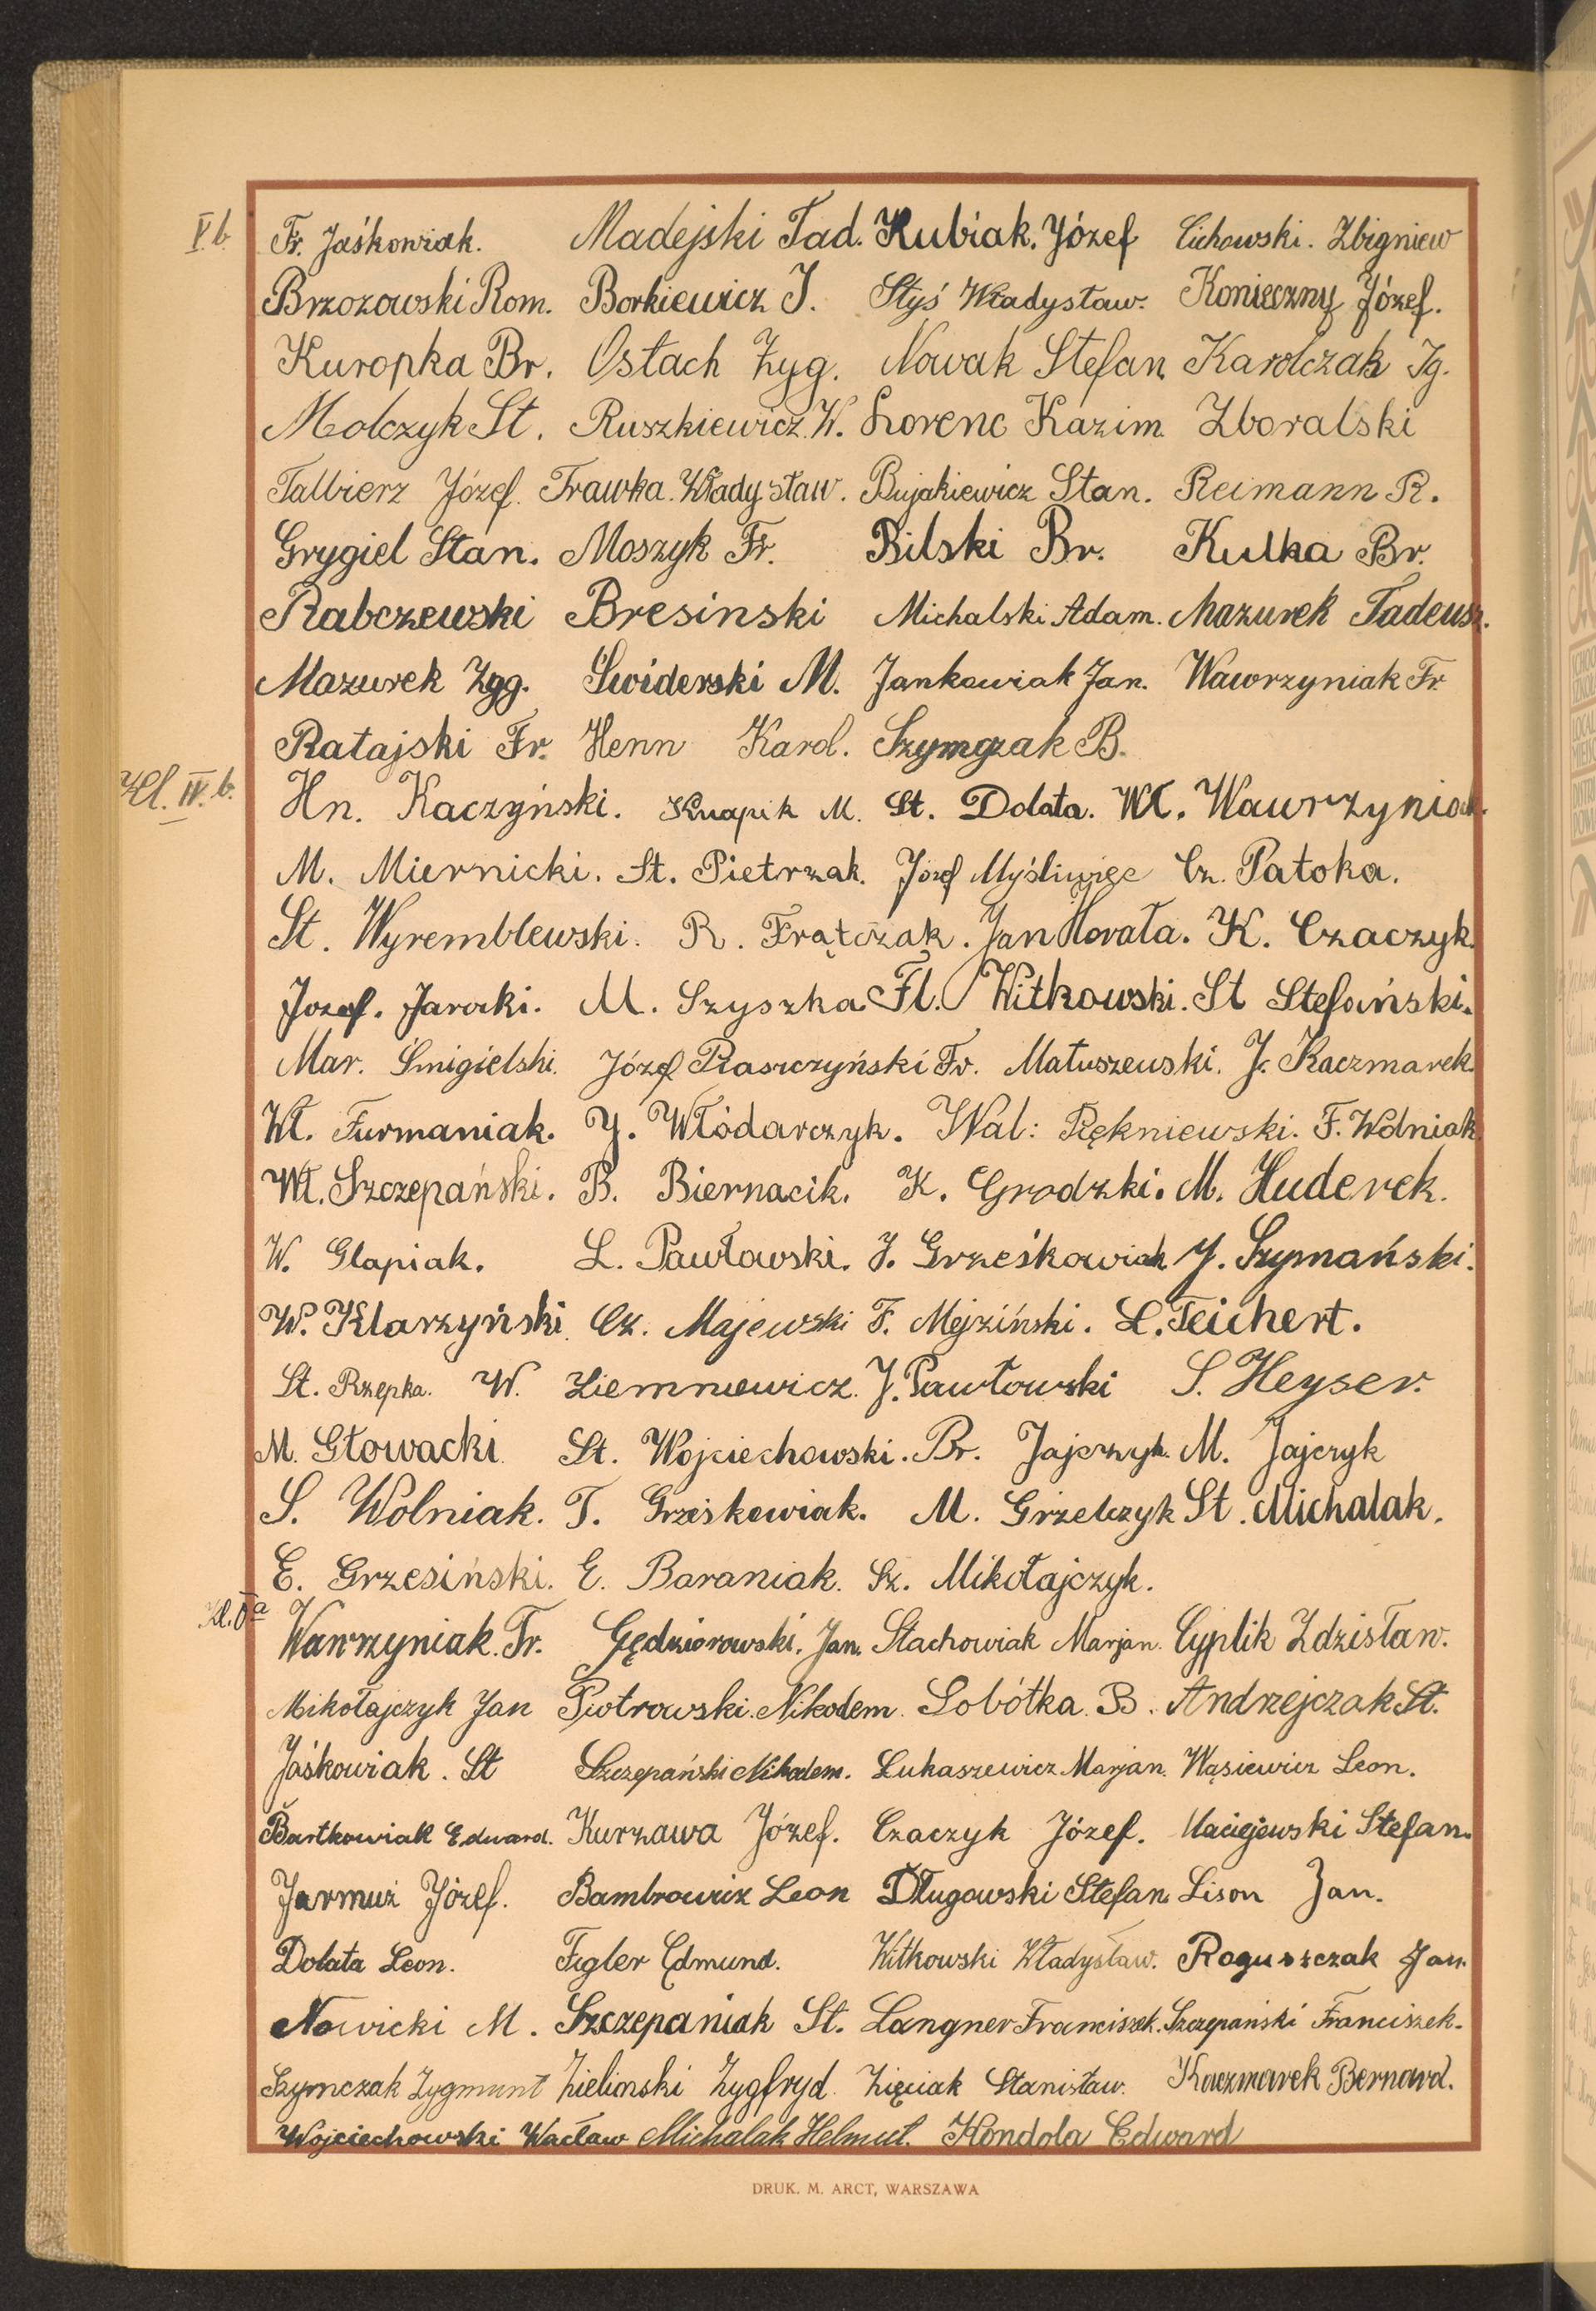 V b. Fr. Jaśkowiak. Madejski Tad. Kubiak. Józef Cichowski. Zbigniew
Brzozowski Rom. Borkiewicz J. Styś Władysław. Konieczny Józef.
Kuropka Br. Ostach Zyg. Nowak Stefan Karolczak Ig.
Molczyk St. Ruszkiewicz W. Lorenc Kazim. Zboralski
Talbierz Józef. Trawka. Władysław. Bujakiewicz Stan. Reimann R.
Grygiel Stan. Moszyk Fr. Bilski Br. Kulka Br.
Rabczewski Bresinski Michalski Adam. Mazurek Tadeusz.
Mazurek Zyg. Świderski M. Jankowiak Jan. Wawrzyniak Fr.
Ratajski Fr. Henn Karol. Szymczak B.
Kl. IV. b. Hn. Kaczyński. Knapik M. St. Dolata. Wł. Wawrzyniak.
M. Miernicki. St. Pietrzak. Józef Myśliwiec Cz. Patoka.
St. Wyremblewski. R. Frątczak. Jan Horała. K. Czaczyk.
Jozef. Jarocki. M. Szyszka Fl. Witkowski. St Stefański.
Mar. Śmigielski. Józef Raszczyński Fr. Matuszewski. J. Kaczmarek.
Wł. Furmaniak. J. Włódarczyk. Wal: Rękniewski. F. Wolniak
Wł. Szczepański. B. Biernacik. K. Grodzki. M. Huderek.
W. Glapiak. L. Pawłowski. J. Grześkowiak J. Szymański.
W. Klarzyński Cz. Majewski F. Mejziński. L. Teichert.
St. Rzepka. W. Ziemniewicz. J. Pawłowski S. Heyser.
M. Głowacki St. Wojciechowski. Br. Jajczyk. M. Jajczyk
S. Wolniak. T. Grześkowiak. M. Grzelczyk St. Michalak.
E. Grzesiński. E. Baraniak. Sz. Mikołajczyk.
Kl. V a Wawrzyniak. Fr. Gędziorowski. Jan. Stachowiak Marjan. Cyplik Zdzisław.
Mikołajczyk Jan Piotrowski. Nikodem. Sobótka. B. Andrzejczak St.
Jaśkowiak. St Szczepański Nikodem. Łukaszewicz Marjan. Wąsiewicz Leon.
Bartkowiak Edward. Kurzawa Józef. Czaczyk Józef. Maciejewski Stefan.
Jarmuż Józef. Bambrowicz Leon Długowski Stefan. Lison Jan.
Dolata Leon. Figler Edmund. Witkowski Władysław. Roguszczak Jan.
Nowicki M. Szczepaniak St. Langner Franciszek. Szczepański Franciszek.
Szymczak Zygmunt Zielinski Zygfryd. Zięciak Stanisław. Kaczmarek Bernard.
Wojciechowski Wacław Michalak Helmut. Kondola Edward
DRUK. M. ARCT, WARSZAWA